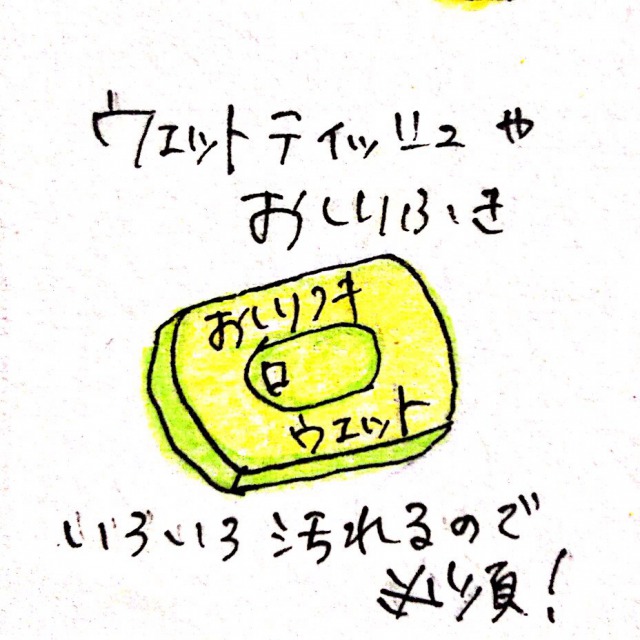 ウエットティッシュや
おしりふき
おしりフキ
ウエット
いろいろ汚れるので
必須!